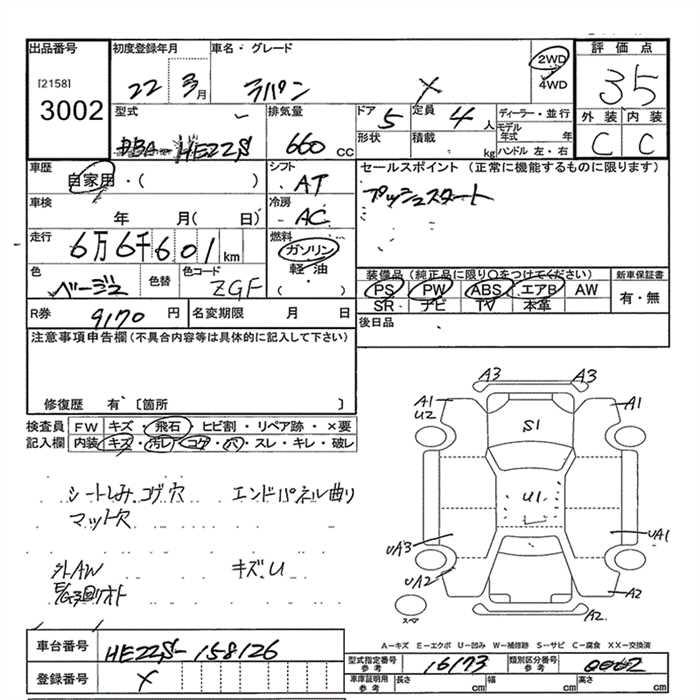 出品番号
[2158]
3002
初度登録年月
22 3月
車名・グレード
ラパン X
2WD
4WD
評価点
35
外装 内装
C C
型式
DBA-HE22S
排気量
660 CC
ドア 5
定員 4人
形状
積載 kg
ディーラー・並行
モデル年式 年
ハンドル 左・右
車歴
自家用・( )
シフト
AT
車検
年 月( 日)
冷房
AC
走行
6万6千601km
燃料
ガソリン
軽油
( ・ )
色
ベージュ
色替
色コード
ZGF
セールスポイント (正常に機能するものに限ります)
プッシュスタート
装備品(純正品に限り○をつけてください)
PS PW ABS エアB AW
SR ナビ TV 本革
新車保証書
有・無
R券 9170 円
名変期限 月 日
後日品
注意事項申告欄(不具合内容等は具体的に記入して下さい)
修復歴 有〔箇所 〕
検査員記入欄
FW キズ・飛石・ヒビ割・リペア跡・×要
内装 キズ・汚レ・コゲ・穴・スレ・キレ・破レ
シートしみ.コゲ穴 エンドパネル曲り
マット穴
外AW キズ.U
A3 A3
A1 A1
U2
S1
U1
UA3 UA1
UA2 A2
A2
スペア
A-キズ E-エクボ U-凹み W-補修跡 S-サビ C-腐食 XX-交換済
車台番号 HE22S-158126
登録番号 X
型式指定番号 参考 16173
類別区分番号 参考 0002
車庫証明用 参考 長さ cm 幅 cm 高さ cm